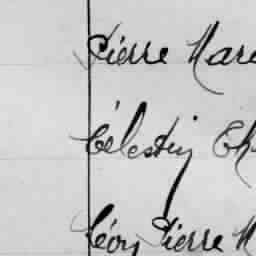 Pierre Mar
Célestin Ch
Léon Pierre M